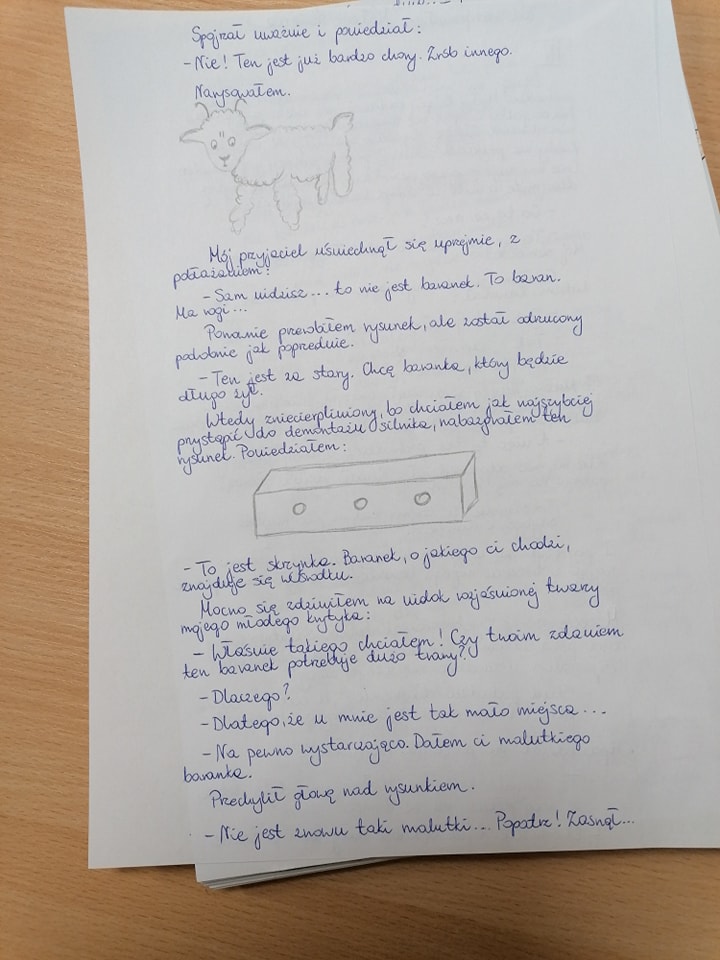 Spojrzał uważnie i powiedział:
- Nie! Ten jest już bardzo chory. Zrób innego.
Narysowałem.
Mój przyjaciel uśmiechnął się uprzejmie, z
pobłażaniem:
- Sam widzisz... to nie jest baranek. To baran.
Ma rogi...
Ponownie przerobiłem rysunek, ale został odrzucony
podobnie jak poprzednie.
- Ten jest za stary. Chcę baranka, który będzie
długo żył.
Wtedy zniecierpliwiony, bo chciałem jak najszybciej
przystąpić do demontażu silnika, nabazgrałem ten
rysunek. Powiedziałem:
- To jest skrzynka. Baranek, o jakiego ci chodzi,
znajduje się w środku.
Mocno się zdziwiłem na widok rozjaśnionej twarzy
mojego młodego krytyka:
- Właśnie takiego chciałem! Czy twoim zdaniem
ten baranek potrzebuje dużo trawy?
- Dlaczego?
- Dlatego, że u mnie jest tak mało miejsca...
- Na pewno wystarczająco. Dałem ci malutkiego
baranka.
Przechylił głowę nad rysunkiem.
- Nie jest znowu taki malutki... Popatrz! Zasnął...